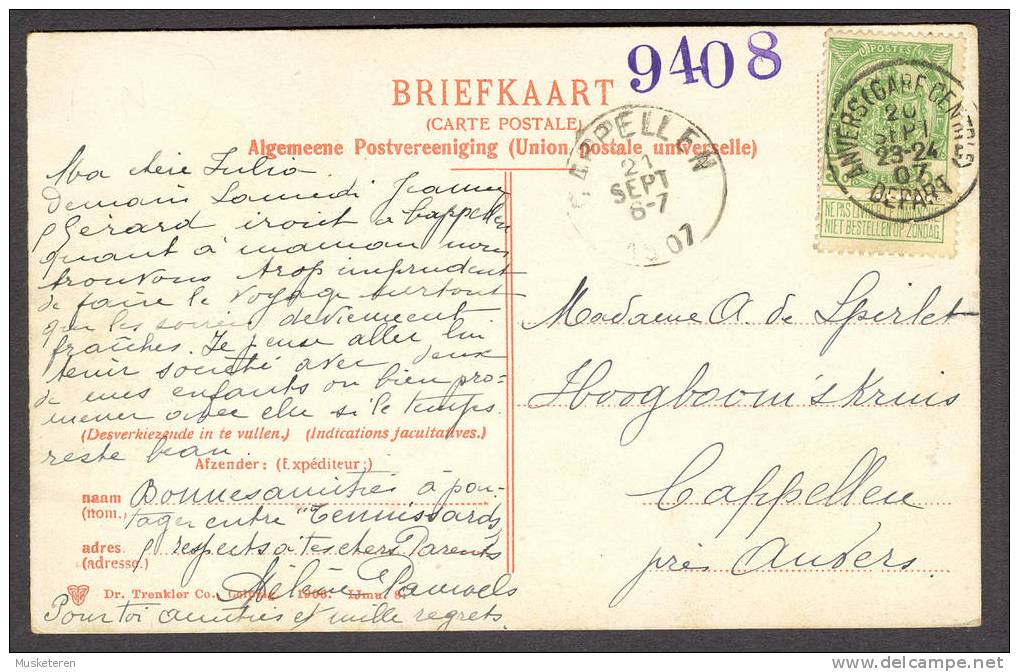 9408
BRIEFKAART
(CARTE POSTALE)
Algemeene Postvereeniging (Union postale universelle)
CAPPELLEN
21
SEPT
6-7
1907
POSTES
ANVERS (GARE CENTRALE)
20
SEPT
23-24
07
DEPART
NE PAS LIVRER LE DIMANCHE
NIET BESTELLEN OP ZONDAG
Ma chère Julia.
Demain Samedi Jeanne
& Gérard iront à Cappellen
quant à maman nous
trouvons trop imprudent
de faire le voyage surtout
que les soirées deviennent
fraîches. Je pense aller lui
tenir société avec deux
de mes enfants ou bien pro-
mener avec elle si le temps
reste beau.
(Desverkiezende in te vullen.) (Indications facultatives.)
Afzender: (Expéditeur:)
naam
(nom.)
adres
(adresse.)
Bonnes amitiés à par-
tager entre "Tennissards"
& respects à tes chers Parents
Hélène Pauwels
Pour toi amitiés et mille regrets.
Dr. Trenkler Co., Leipzig 1906.
Madame A. de Spirlet
Hoogboom's Kruis
Cappellen
près Anvers
Musketeren
delcampe.net